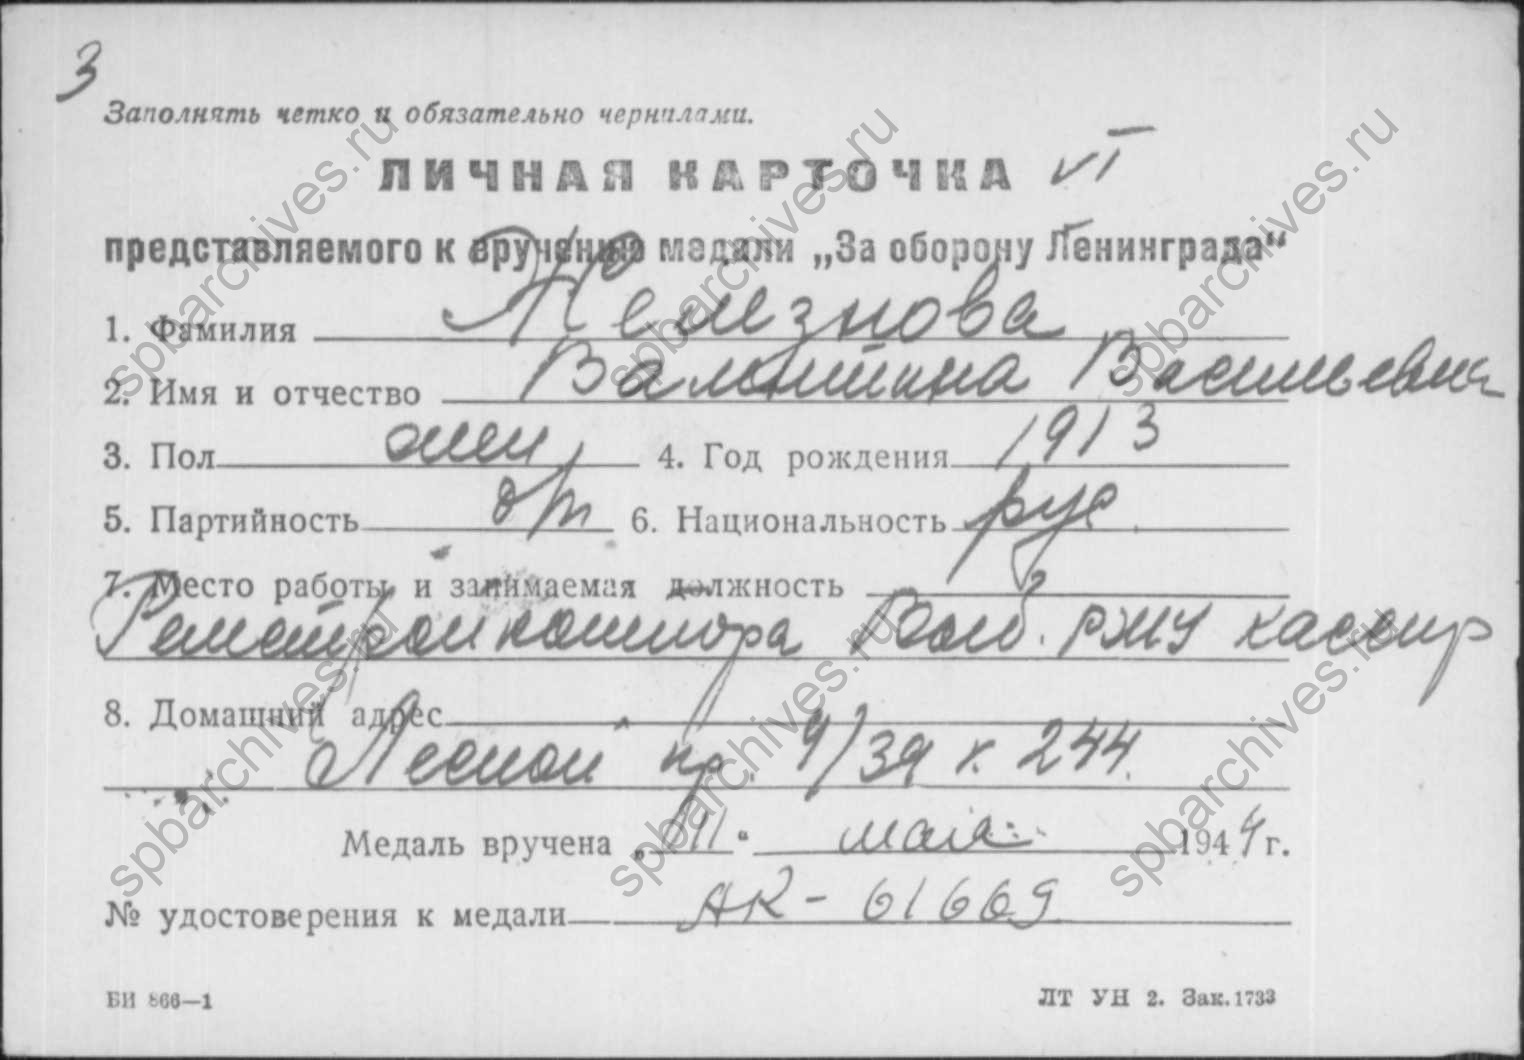 3
Заполнять четко и обязательно чернилами.
ЛИЧНАЯ КАРТОЧКА VI
представляемого к вручению медали „За оборону Ленинграда“
1. Фамилия Железнова
2. Имя и отчество Валентина Васильевна
3. Пол жен 4. Год рождения 1913
5. Партийность б/п 6. Национальность рус
7. Место работы и занимаемая должность
Ремстройконтора Выб. РЖУ кассир
8. Домашний адрес
Лесной пр. 4/39 к. 244.
Медаль вручена „11“ мая 1944 г.
№ удостоверения к медали АК - 61669
БИ 866—1 ЛТ УН 2. Зак. 1733
spbarchives.ru
spbarchives.ru
spbarchives.ru
spbarchives.ru
spbarchives.ru
spbarchives.ru